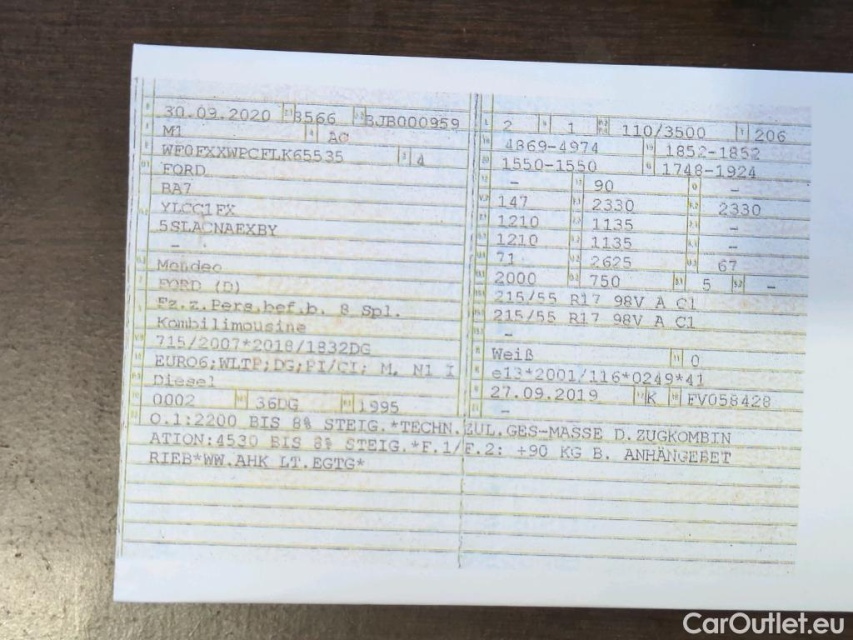 30.09.2020 8566 BJB000959
M1 AC
WF0FXXWPCFLK65535 4
FORD
BA7
YLCC1FX
5SLACNAEXBY
-
Mondeo
FORD (D)
Fz.z.Pers.bef.b. 8 Spl.
Kombilimousine
715/2007*2018/1832DG
EURO6;WLTP;DG;PI/CI; M, N1 I
Diesel
0002 36DG 1995
2 1 110/3500 206
4869-4974 1852-1852
1550-1550 1748-1924
- 90 -
147 2330 2330
1210 1135 -
1210 1135 -
71 2625 67
2000 750 5 -
215/55 R17 98V A C1
215/55 R17 98V A C1
-
Weiß 0
e13*2001/116*0249*41
27.09.2019 K FV058428
-
O.1:2200 BIS 8% STEIG.*TECHN.ZUL.GES-MASSE D.ZUGKOMBIN
ATION:4530 BIS 8% STEIG.*F.1/F.2: +90 KG B. ANHÄNGEBET
RIEB*WW.AHK LT.EGTG*
CarOutlet.eu